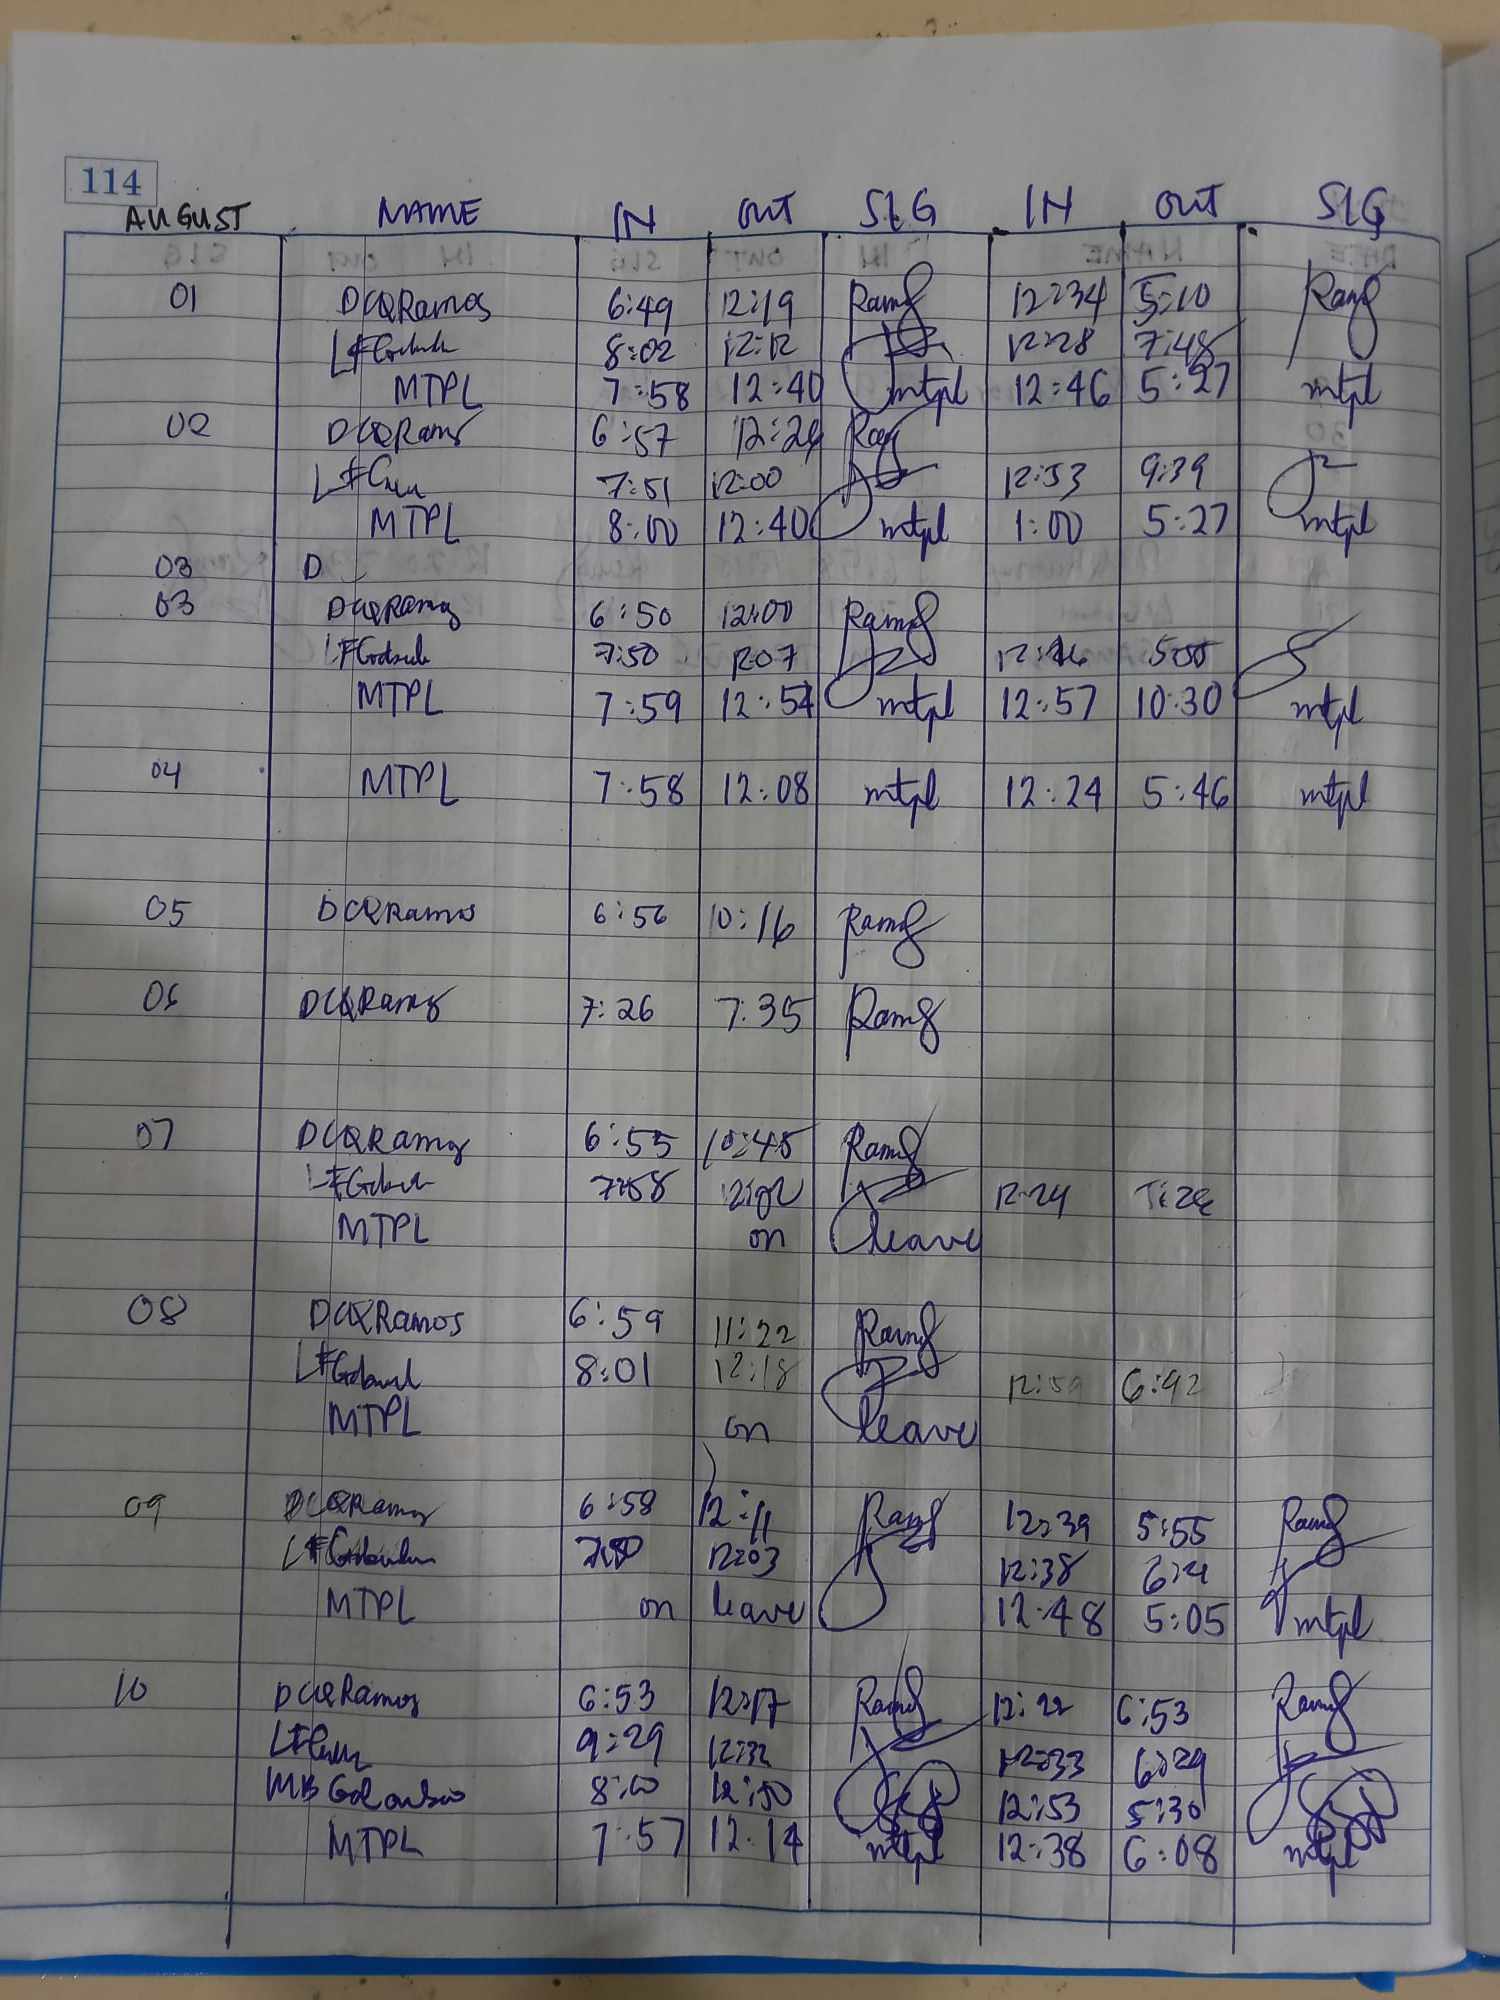 114
AUGUST NAME IN OUT SIG IN OUT SIG
01 DCQRamos 6:49 12:19 Ramos 12:34 5:10 Ramos
8:02 12:12 12:28 7:48
MTPL 7:58 12:40 mtpl 12:46 5:27 mtpl
02 DCQRamos 6:57 12:24
7:51 12:00 12:53 9:39
MTPL 8:00 12:40 mtpl 1:00 5:27 mtpl
03 D
03 DCQRamos 6:50 12:00 Ramos
7:50 12:07 5:55
MTPL 7:59 12:54 mtpl 12:57 10:30 mtpl
04 MTPL 7:58 12:08 mtpl 12:24 5:46 mtpl
05 DCQRamos 6:56 10:16 Ramos
06 DCQRamos 7:26 7:35 Ramos
07 DCQRamos 6:55 10:45 Ramos
7:58 12:02 12:24
MTPL on leave
08 DCQRamos 6:59 11:22 Ramos
8:01 12:18 12:59 6:42
MTPL on leave
09 DCQRamos 6:58 12:11 Ramos 12:39 5:55 Ramos
12:03 12:38
MTPL on leave 12:48 5:05 mtpl
10 DCQRamos 6:53 12:17 Ramos 12:22 6:53 Ramos
9:29 12:32 12:33 6:29
8:00 12:50 12:53 5:30
MTPL 7:57 12:14 mtpl 12:38 6:08 mtpl